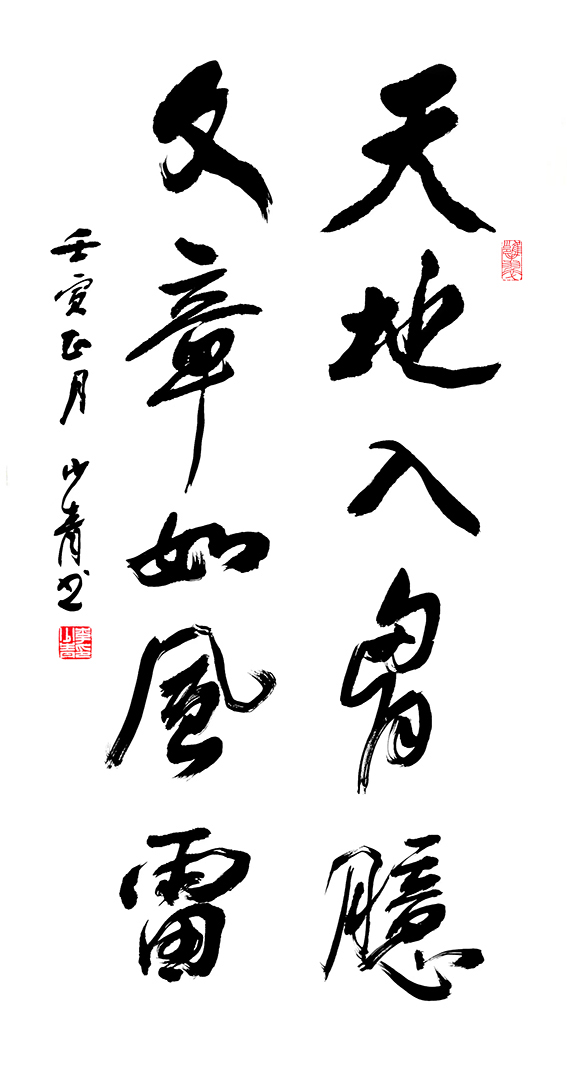 天地入胷臆
文章如風雷
壬寅正月 少青书